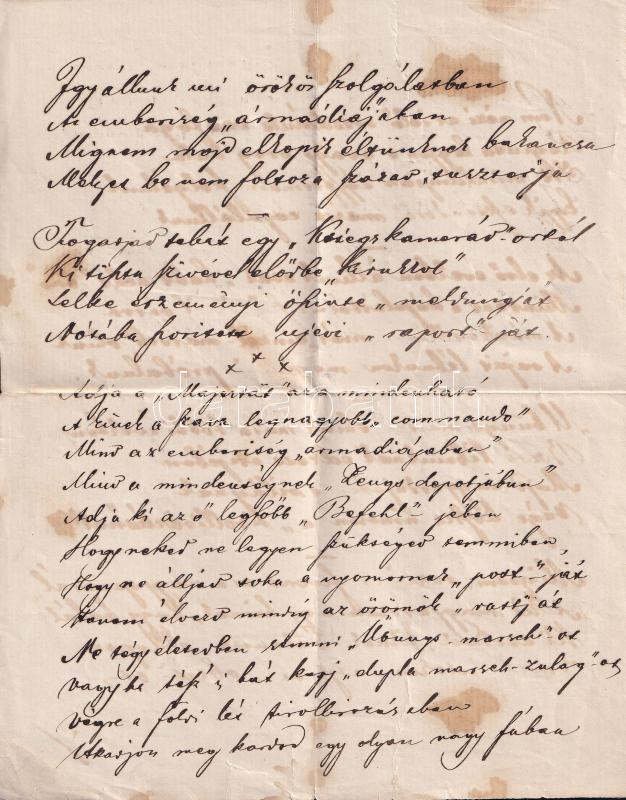 Igy állunk mi örökös szolgálatban
Az emberiség „armádiá”jaban
Mignem majd elkopik éltünknek bakancsa
Melyet be nem foltoz a század „suszter”ja
Fogadjad tehát egy „Kriegskamerád”-odtól
Ki szivével előrbe
Lelke eszményi őszinte „meldungját”
Nótába szoritott ujévi „raport”-ját.
x x x
Adja a „Majestät” az a mindenható
A kinek a szava legnagyobb „commando”
Mind az emberiség „armadiájaban”
Mind a mindenségnek „Zeugs-depotjában”
Adja ki az ő legfőbb „Befehl”-jében
Hogy neked ne legyen szükséged semmiben,
Hogy ne álljad soha a nyomornak „post”-ját
Hanem élvezd mindig az örömök „rastját
Ne tégy életedben semmi „Übungs-marsch”-ot
vagy ha tész is hát kapj „dupla marsch-zulag”-ot
végre a földi lét
Akadjon meg kardod egy olyan nagy fában
darabanth